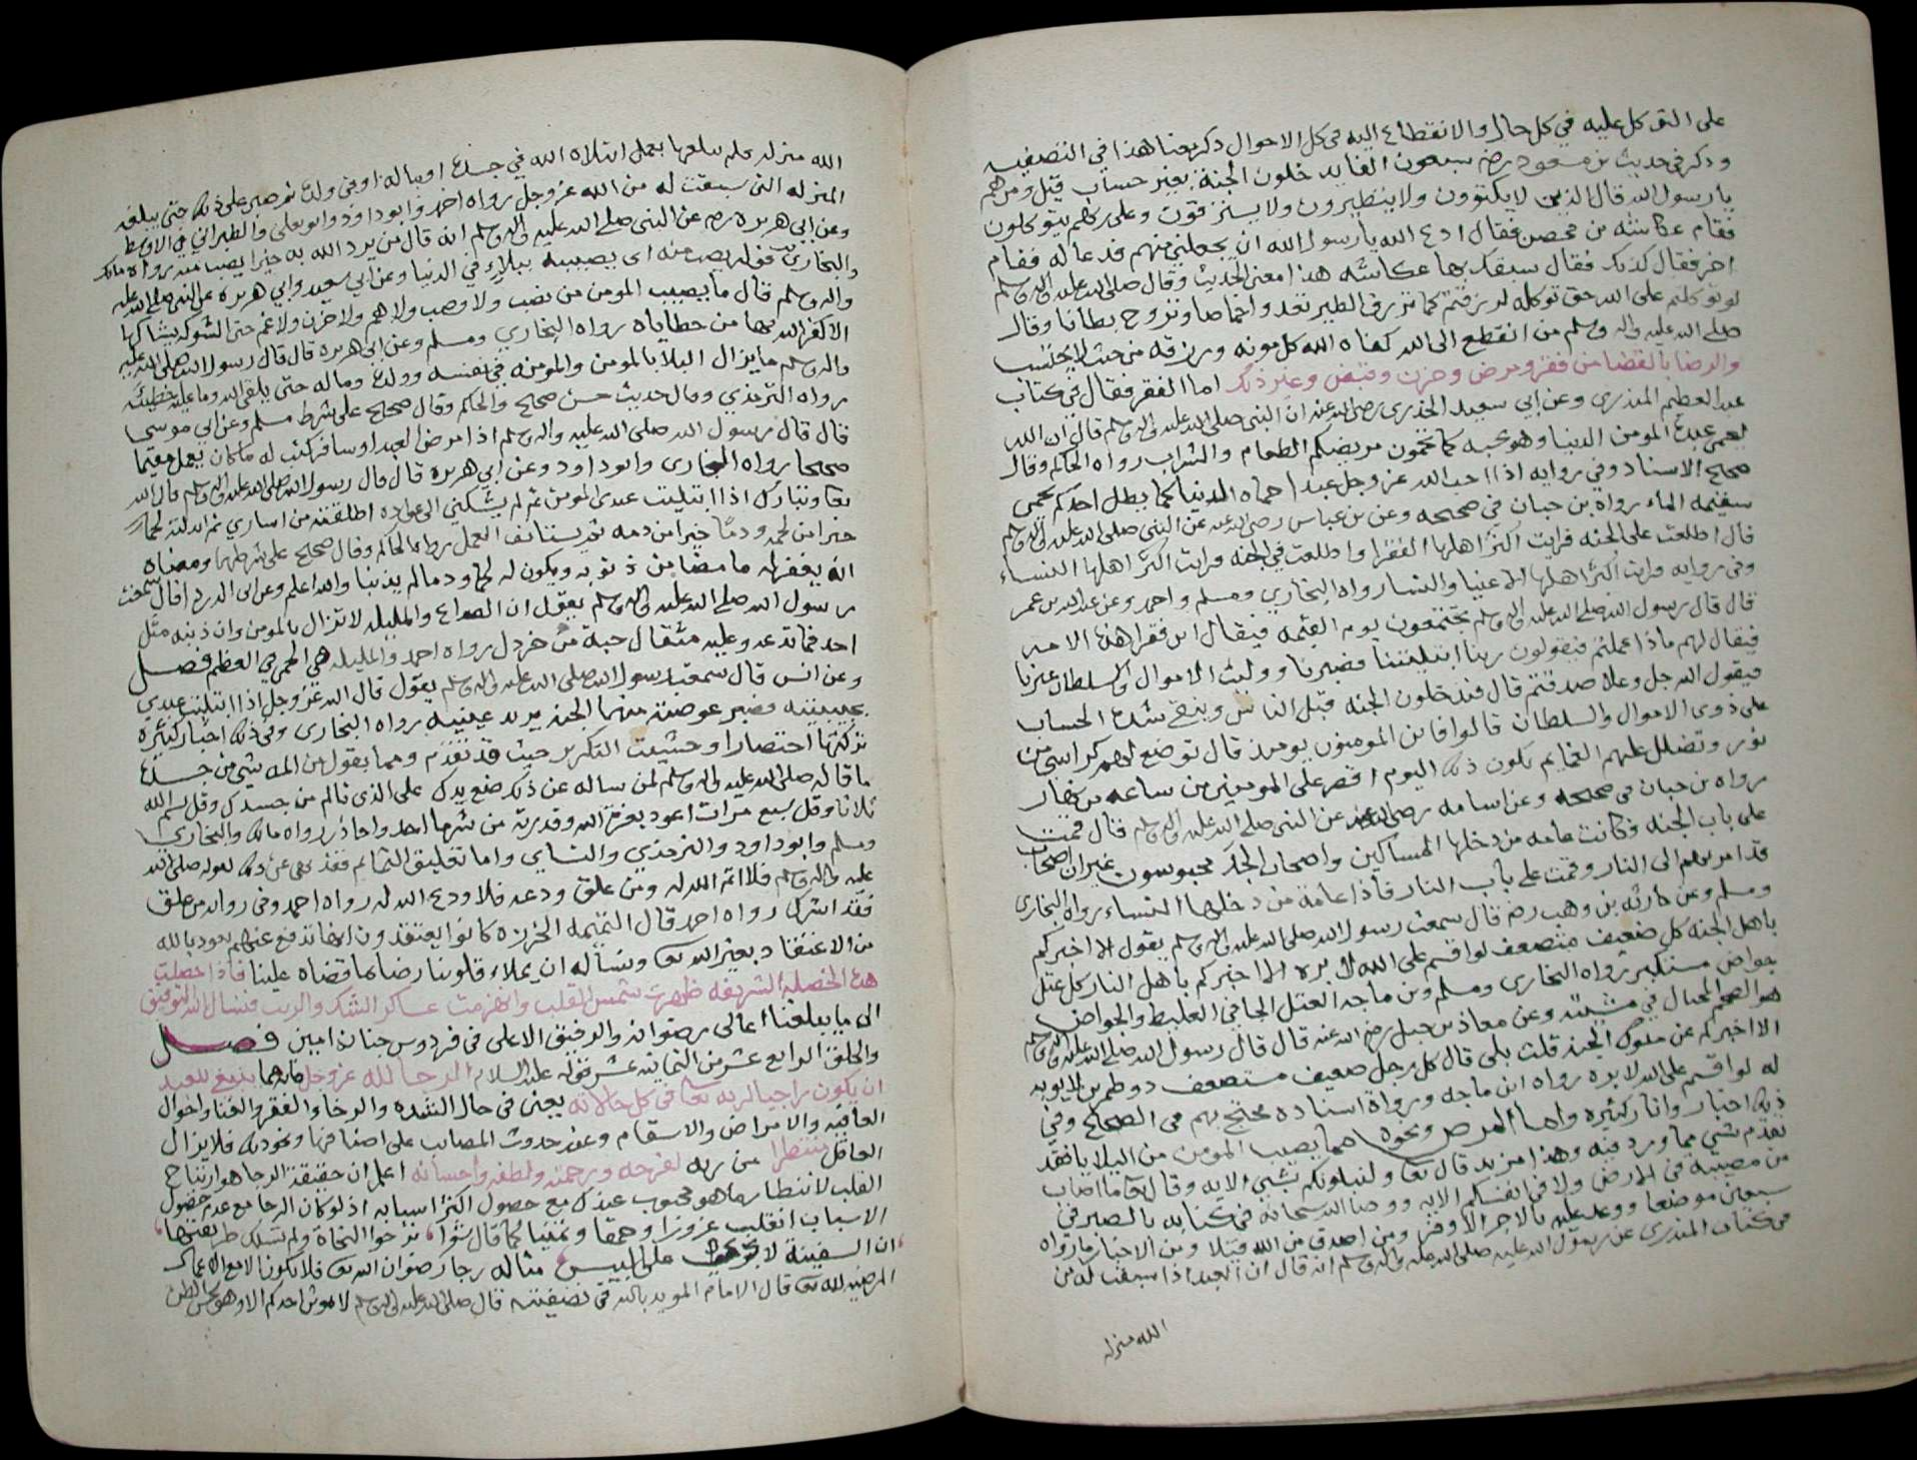 على التوكل عليه في كل حال والانقطاع اليه في كل الاحوال ذكر معنا هذا في التصفيه
وذكر في حديث بن مسعود رضه سبعون الفا يدخلون الجنة بغير حساب قيل ومن هم
يا رسول الله قال الذين لا يكتوون ولا يتطيرون ولا يسترقون وعلى ربهم يتوكلون
فقام عكاشه بن محصن فقال ادع الله يا رسول الله ان يجعلني منهم فدعا له فقام
اخر فقال كذلك فقال سبقك بها عكاشه هذا معنى الحديث وقال صلى الله عليه واله وسلم
لو توكلتم على الله حق توكله لرزقتم كما ترزق الطير تغدوا خماصا وتروح بطانا وقال
صلى الله عليه واله وسلم من انقطع الى الله كفاه الله كل مونه ورزقه من حيث لا يحتسب
والرضا بالقضا من فقر ومرض وحزن وقبض وغير ذلك اما الفقر فقال في كتاب
عبد العظيم المنذري وعن ابي سعيد الخدري رضي الله عنه ان النبي صلى الله عليه واله وسلم قال ان الله
ليحمي عبده المومن الدنيا وهو يحبه كما تحمون مريضكم الطعام والشراب رواه الحاكم وقال
صحيح الاسناد وفي روايه اذا احب الله عز وجل عبدا حماه الدنيا كما يظل احدكم يحمي
سقيمه الماء رواه بن حبان في صحيحه وعن بن عباس رضي الله عنه عن النبي صلى الله عليه واله وسلم
قال اطلعت على الجنه فرايت اكثر اهلها الفقرا واطلعت في الجنه فرايت اكثر اهلها النساء
وفي روايه فرايت اكثر اهلها الاغنيا والنسا رواه البخاري ومسلم واحمد وعن عبد الله بن عمر
قال قال رسول الله صلى الله عليه واله وسلم يجتمعون يوم القيمه فيقال اين فقرا هذه الامه
فيقال لهم ماذا عملتم فيقولون ربنا ابتليتنا فصبرنا ووليت الاموال والسلطان غيرنا
فيقول الله جل وعلا صدقتم قال فيدخلون الجنه قبل الناس وتبقى شدة الحساب
على ذوي الاموال والسلطان قالوا فاين المومنون يومئذ قال توضع لهم كراسي من
نور وتضلل عليهم الغمايم يكون ذلك اليوم اقصر على المومنين من ساعه من نهار
رواه بن حبان في صحيحه وعن اسامه رضي الله عنه عن النبي صلى الله عليه واله وسلم قال قمت
على باب الجنه فكانت عامه من دخلها المساكين واصحاب الجد محبوسون غير ان اصحاب
قد امر بهم الى النار وقمت على باب النار فاذا عامة من دخلها النساء رواه البخاري
ومسلم وعن حارثه بن وهب رضه قال سمعت رسول الله صلى الله عليه واله وسلم يقول الا اخبركم
باهل الجنه كل ضعيف متضعف لو اقسم على الله لا بره الا اخبركم باهل النار كل عتل
جواض مستكبر رواه البخاري ومسلم وبن ماجه العتل الجافي الغليظ والجواض
هو الضخم المختال في مشيته وعن معاذ بن جبل رضي الله عنه قال قال رسول الله صلى الله عليه واله وسلم
الا اخبركم عن ملوك الجنه قلت بلى قال كل رجل ضعيف مستضعف ذو طمرين لا يوبه
له لو اقسم على الله لابره رواه ابن ماجه ورواة اسناده محتج بهم في الصحاح وفي
ذلك اخبار واثار كثيره واما المرض ونحوه مما يصيب المومن من البلايا فقد
تقدم شي مما ورد فيه وهذا مزيد قال تعا ولنبلونكم بشي الايه وقال تعا ما اصاب
من مصيبة في الارض ولا في انفسكم الايه ووصا الله سبحانه في كتابه بالصبر في
سبعين موضعا ووعد عليه بالاجر الاوفر ومن اصدق من الله قيلا ومن الاخبار ما رواه
في كتاب المنذري عن رسول الله صلى الله عليه واله وسلم انه قال ان العبد اذا سبقت له من
الله منزله
الله منزله فلم يبلغها بعمل ابتلاه الله في جسده او ماله او في ولده ثم صبر على ذلك حتى يبلغه
المنزله التي سبقت له من الله عز وجل رواه احمد وابو داود وابو يعلى والطبراني في الاوسط
وعن ابي هريره رضه عن النبي صلى الله عليه واله وسلم انه قال من يرد الله به خيرا يصب منه رواه مالك
والبخاري قوله يصب منه اي يصيبه ببلاء في الدنيا وعن ابي سعيد وابي هريره عن النبي صلى الله عليه
واله وسلم قال ما يصيب المومن من نصب ولا وصب ولا هم ولا حزن ولا غم حتى الشوكه يشاكها
الا كفر الله بها من خطاياه رواه البخاري ومسلم وعن ابي هريره قال قال رسول الله صلى الله عليه
واله وسلم ما يزال البلا بالمومن والمومنه في نفسه وولده وماله حتى يلقى الله وما عليه خطيئه
رواه الترمذي وقال حديث حسن صحيح والحاكم وقال صحيح على شرط مسلم وعن ابي موسى
قال قال رسول الله صلى الله عليه واله وسلم اذا مرض العبد او سافر كتب له ما كان يعمل مقيما
صحيحا رواه البخاري وابو داود وعن ابي هريره قال قال رسول الله صلى الله عليه واله وسلم قال الله
تعا وتبارك اذا ابتليت عبدي المومن ثم لم يشكني الى عواده اطلقته من اساري ثم ابدلته لحما
خيرا من لحمه ودما خيرا من دمه ثم يستانف العمل رواه الحاكم وقال صحيح على شرطهما ومعناه
انه يغفر له ما مضا من ذنوبه ويكون له لحما ودما لم يذنبا والله اعلم وعن ابي الدرداء قال سمعت
رسول الله صلى الله عليه واله وسلم يقول ان الصداع والمليله لا تزال بالمومن وان ذنبه مثل
احد فما تدعه وعليه مثقال حبة من خردل رواه احمد والمليله هي الحمى في العظم فصل
وعن انس قال سمعت رسول الله صلى الله عليه واله وسلم يقول قال الله عز وجل اذا ابتليت عبدي
بحبيبتيه فصبر عوضته منهما الجنه يريد عينيه رواه البخاري وفي ذلك اخبار كثيره
تركتها اختصارا وخشيت التكرير حيث قد تقدم ومما يقول من المه شي من جسده
ما قاله صلى الله عليه واله وسلم لمن ساله عن ذلك ضع يدك على الذي تالم من جسدك وقل بسم الله
ثلاثا وقل سبع مرات اعوذ بعزة الله وقدرته من شر ما اجد واحاذر رواه مالك والبخاري
ومسلم وابو داود والترمذي والنساي واما تعليق التمايم فقد نهي عن ذلك لقوله صلى الله
عليه واله وسلم فلا اتم الله له ومن علق ودعه فلا ودع الله له رواه احمد وفي روايه من علق
فقد اشرك رواه احمد قال التميمه الخرزه كانوا يعتقدون انها تدفع عنهم نعوذ بالله
من الاعتقاد بغير الله تعا ونسأله ان يملاء قلوبنا رضا بما قضاه علينا فاذا حصلت
هذه الخصله الشريفه ظهرت شمس القلب وانهزمت عساكر الشك والريب فنسال الله التوفيق
الى ما يبلغنا اعالي رضوانه والرفيق الاعلى في فردوس جنانه امين فصل
والخلق الرابع عشر من الثمانيه عشر قوله عليه السلام الرجا لله عز وجل فانه مما ينبغي للعبد
ان يكون راجيا لربه تعا في كل حالاته يعني في حال الشده والرخا والفقر والغنا واحوال
العافيه والامراض والاسقام وعند حدوث المصايب على اصنافها ونحو ذلك فلا يزال
العاقل منتظرا من ربه لفرجه ورحمته ولطفه واحسانه اعلم ان حقيقة الرجا هو ارتياح
القلب لانتظار ما هو محبوب عندك مع حصول اكثر اسبابه اذ لو كان الرجا مع عدم حصول
الاسباب انقلب غرورا وحمقا وتمنيا كما قال شعرا ترجوا النجاة ولم تسلك طريقتها
ان السفينة لا تجري على اليبس مثاله رجا رضوان الله تعا فلا يكون الا مع الاعمال
المرضيه لله تعا قال الامام المويد بالله في تصفيته قال صلى الله عليه واله وسلم لا يموتن احدكم الا وهو يحسن الظن